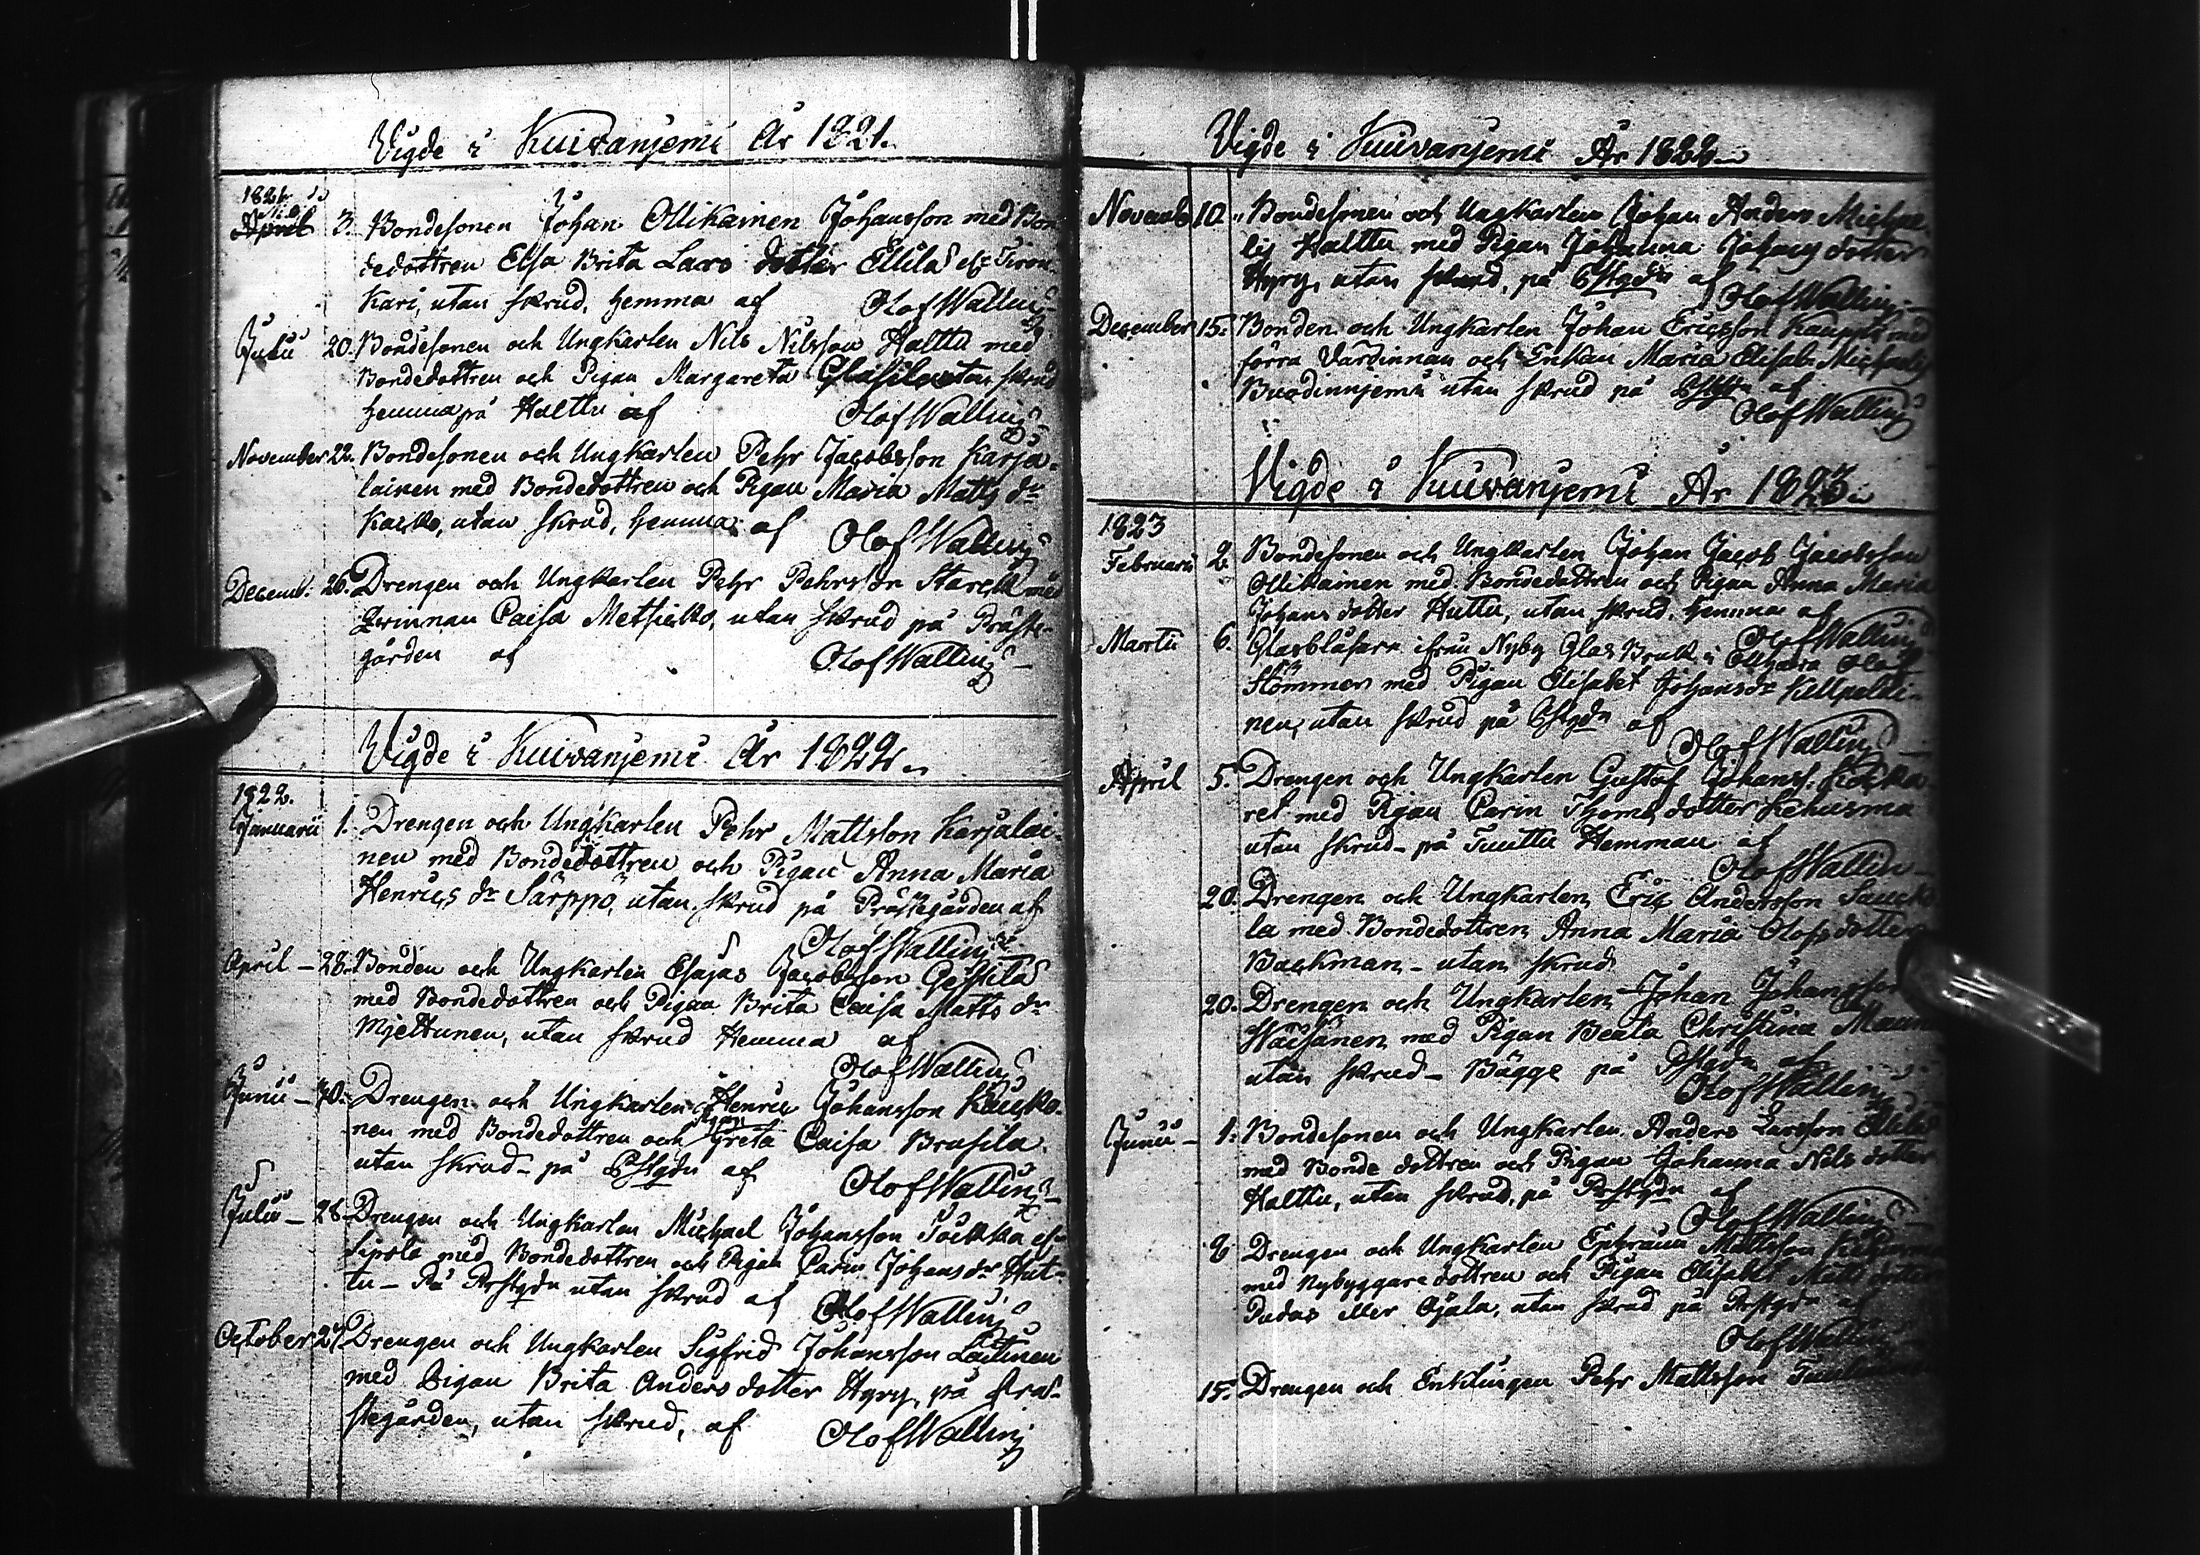 Vigde i Kuivaniemi År 1821.
1821
April 3. Bondesonen Johan Ollikainen Johansson med Bon-
dedottren Elsa Brita Lars dotter Ellilä
Kari, utan skrud, hemma af Olof Wallin
Julii 20. Bondesonen och Ungkarlen Nils Nilsson Halttu med
Bondedottren och Pigan Margareta utan skrud
hemma på Halttu af Olof Wallin
November 22. Bondesonen och Ungkarlen Pehr Jacobsson Karja-
lainen med Bondedottren och Pigan Maria Matts dr
Kaisko, utan skrud, hemma af Olof Wallin
Decemb: 26. Drengen och Ungkarlen Pehr Pehrsson Starck med
Qvinnan Caisa Metsicko, utan skrud på Präste-
gården af Olof Wallin
Vigde i Kuivaniemi År 1822.
1822.
Januarii 1. Drengen och Ungkarlen Pehr Mattsson Karjalai-
nen med Bondedottren och Pigan Anna Maria
Henrics dr Särppö, utan skrud på Prästegården af
Olof Wallin
April - 28. Bonden och Ungkarlen Esajas Jacobsson
med Bondedottren och Pigan Brita Caisa Matts dr
Mjettunen, utan skrud Hemma af
Olof Wallin
Junii - 30. Drengen och Ungkarlen Henric Johansson Kaicko-
nen med Bondedottren och Pigan Greta Caisa Brusila
utan skrud - på Pstgdn af Olof Wallin
Julii - 28. Drengen och Ungkarlen Michael Johansson
Sipola med Bondedottren och Pigan Carin Johans dr Hut-
tu - På Prstgdn utan skrud af Olof Wallin
October 27 Drengen och Ungkarlen Sigfrid Johansson Laitinen
med Pigan Brita Anders dotter Hyry, på Prä-
stegården, utan skrud, af Olof Wallin
Vigde i Kuivaniemi År 1822
Novemb 10. Bondesonen och Ungkarlen Johan Anders Michae-
lis Halttu med Pigan Johanna Johans dotter
Hyry, utan skrud, på Pstgdn af Olof Wallin
December 15. Bonden och Ungkarlen Johan Ericsson Kauppi med
förra Värdinnan och Enkan Maria Elisab. Michaels
utan skrud på Pstgdn af
Olof Wallin
Vigde i Kuivaniemi År 1823.
1823
Februarii 2. Bondesonen och Ungkarlen Johan Jacob Jacobsson
Ollikainen med Bondedottren och Pigan Anna Maria
Johans dotter Huttu, utan skrud, hemma af
Olof Wallin
Martii 6. Glasblåsare ifrån Nyby Glas Bruk i Olof
Stömmer med Pigan Elisabet Johansdr Kellpeldi-
nen, utan skrud på Pstgdn af
Olof Wallin
April 5. Drengen och Ungkarlen Gustof Johanss.
ret med Pigan Carin Thoms dotter Kehusma
utan skrud - på Tuuttu Hemman af
Olof Wallin
20. Drengen och Ungkarlen Eric Andersson Saucko-
la med Bondedottren Anna Maria Olofs dotter
Backman - utan skrud
20. Drengen och Ungkarlen Johan Johansson
Wäisänen med Pigan Beata Christina
utan skrud - Bägge på Pstgdn af
Olof Wallin
Junii - 1. Bondesonen och Ungkarlen Anders Larsson
med Bonde dottren och Pigan Johanna Nils dotter
Halttu, utan skrud, på Prstgdn af
Olof Wallin
8 Drengen och Ungkarlen Ephraim Mattsson
med Nybyggare dottren och Pigan Elisabet Matts dotter
Pudas eller Ojala, utan skrud på Prstgdn af
Olof Wallin
15. Drengen och Enklingen Pehr Mattsson